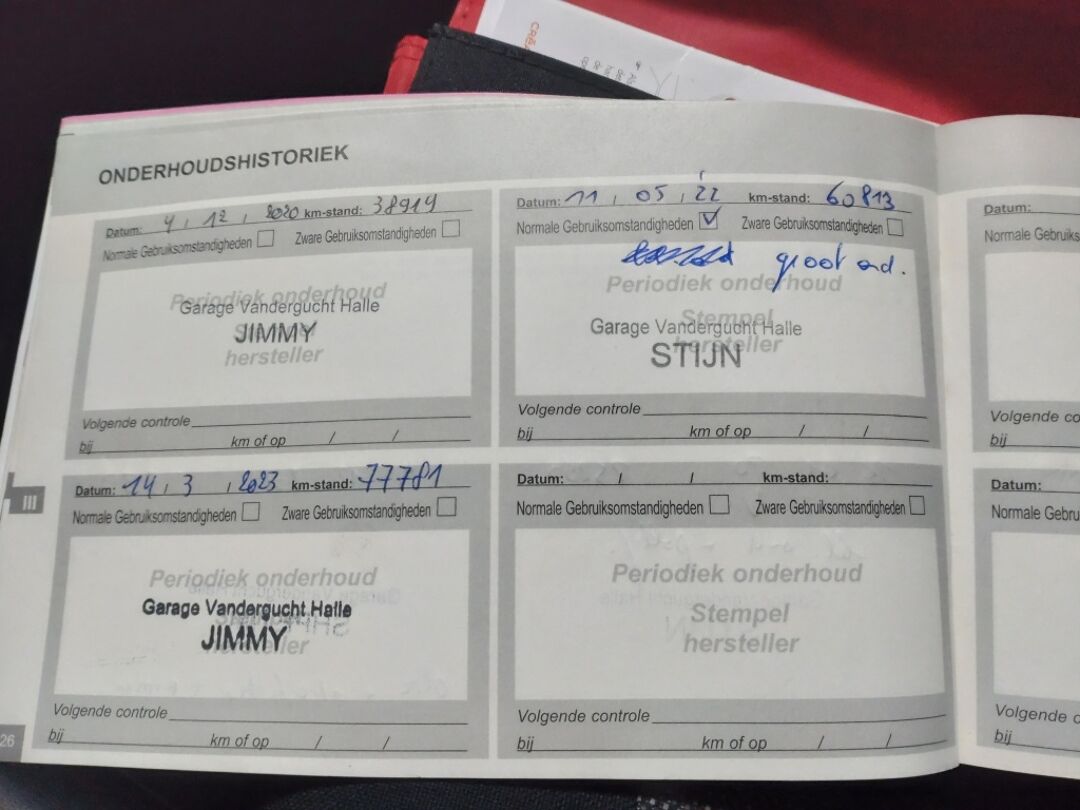 ONDERHOUDSHISTORIEK
Datum: 4 / 12 / 2020 km-stand: 38919
Normale Gebruiksomstandigheden Zware Gebruiksomstandigheden
Periodiek onderhoud
Garage Vandergucht Halle
JIMMY
hersteller
Volgende controle
bij km of op / /
Datum: 11 / 05 / 22 km-stand: 60813
Normale Gebruiksomstandigheden Zware Gebruiksomstandigheden
groot ond.
Periodiek onderhoud
Stempel
Garage Vandergucht Halle
hersteller
STIJN
Volgende controle
bij km of op / /
Datum:
Normale Gebruiks
Volgende co
bij
III
Datum: 14 / 3 / 2023 km-stand: 77781
Normale Gebruiksomstandigheden Zware Gebruiksomstandigheden
Periodiek onderhoud
Garage Vandergucht Halle
JIMMY
hersteller
Volgende controle
bij km of op / /
Datum: / / km-stand:
Normale Gebruiksomstandigheden Zware Gebruiksomstandigheden
Periodiek onderhoud
Stempel
hersteller
Volgende controle
bij km of op / /
Datum:
Normale Gebru
Volgende c
bij
26